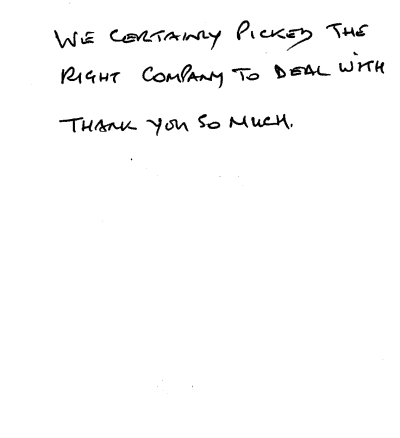 WE CERTAINLY PICKED THE
RIGHT COMPANY TO DEAL WITH
THANK YOU SO MUCH.